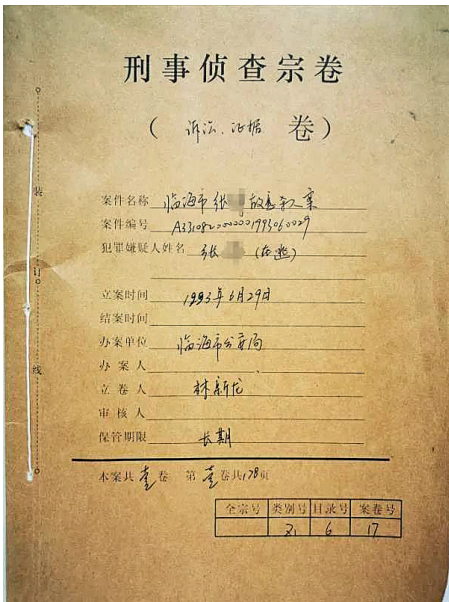 刑事侦查宗卷
（诉讼、证据 卷）
案件名称 临海市张 故意杀人案
案件编号 A3310820000001993060029
犯罪嫌疑人姓名 张 (在逃)
立案时间 1993年6月29日
结案时间
办案单位 临海市公安局
办案人
立卷人 林新龙
审核人
保管期限 长期
本案共壹卷 第壹卷共178页
全宗号 类别号 目录号 案卷号
6 17
装
订
线